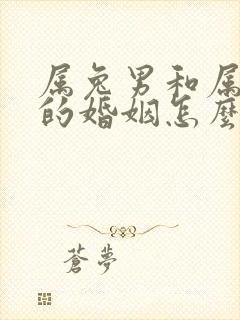 属兔男和属
的婚姻怎麼
蒼夢